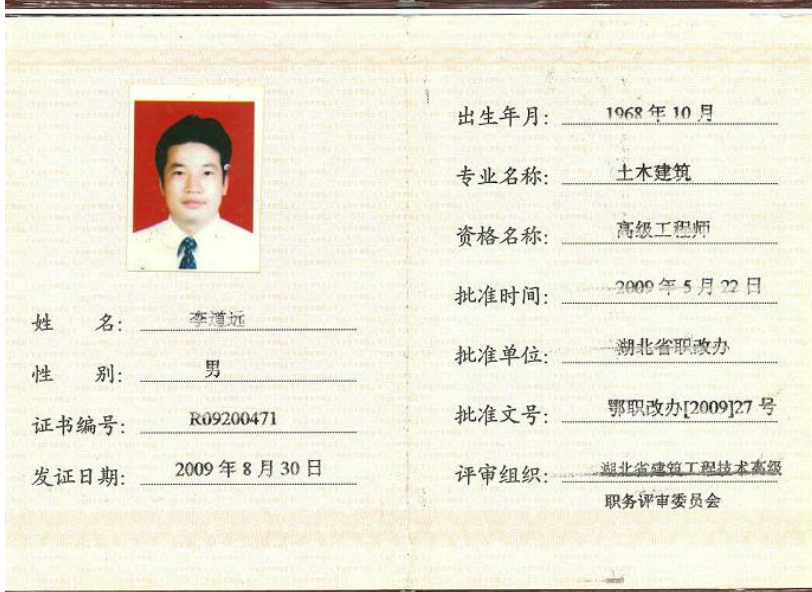 姓 名: 李道远
性 别: 男
证书编号: R09200471
发证日期: 2009 年 8 月 30 日
出生年月: 1968 年 10 月
专业名称: 土木建筑
资格名称: 高级工程师
批准时间: 2009 年 5 月 22 日
批准单位: 湖北省职改办
批准文号: 鄂职改办[2009]27 号
评审组织: 湖北省建筑工程技术高级
职务评审委员会